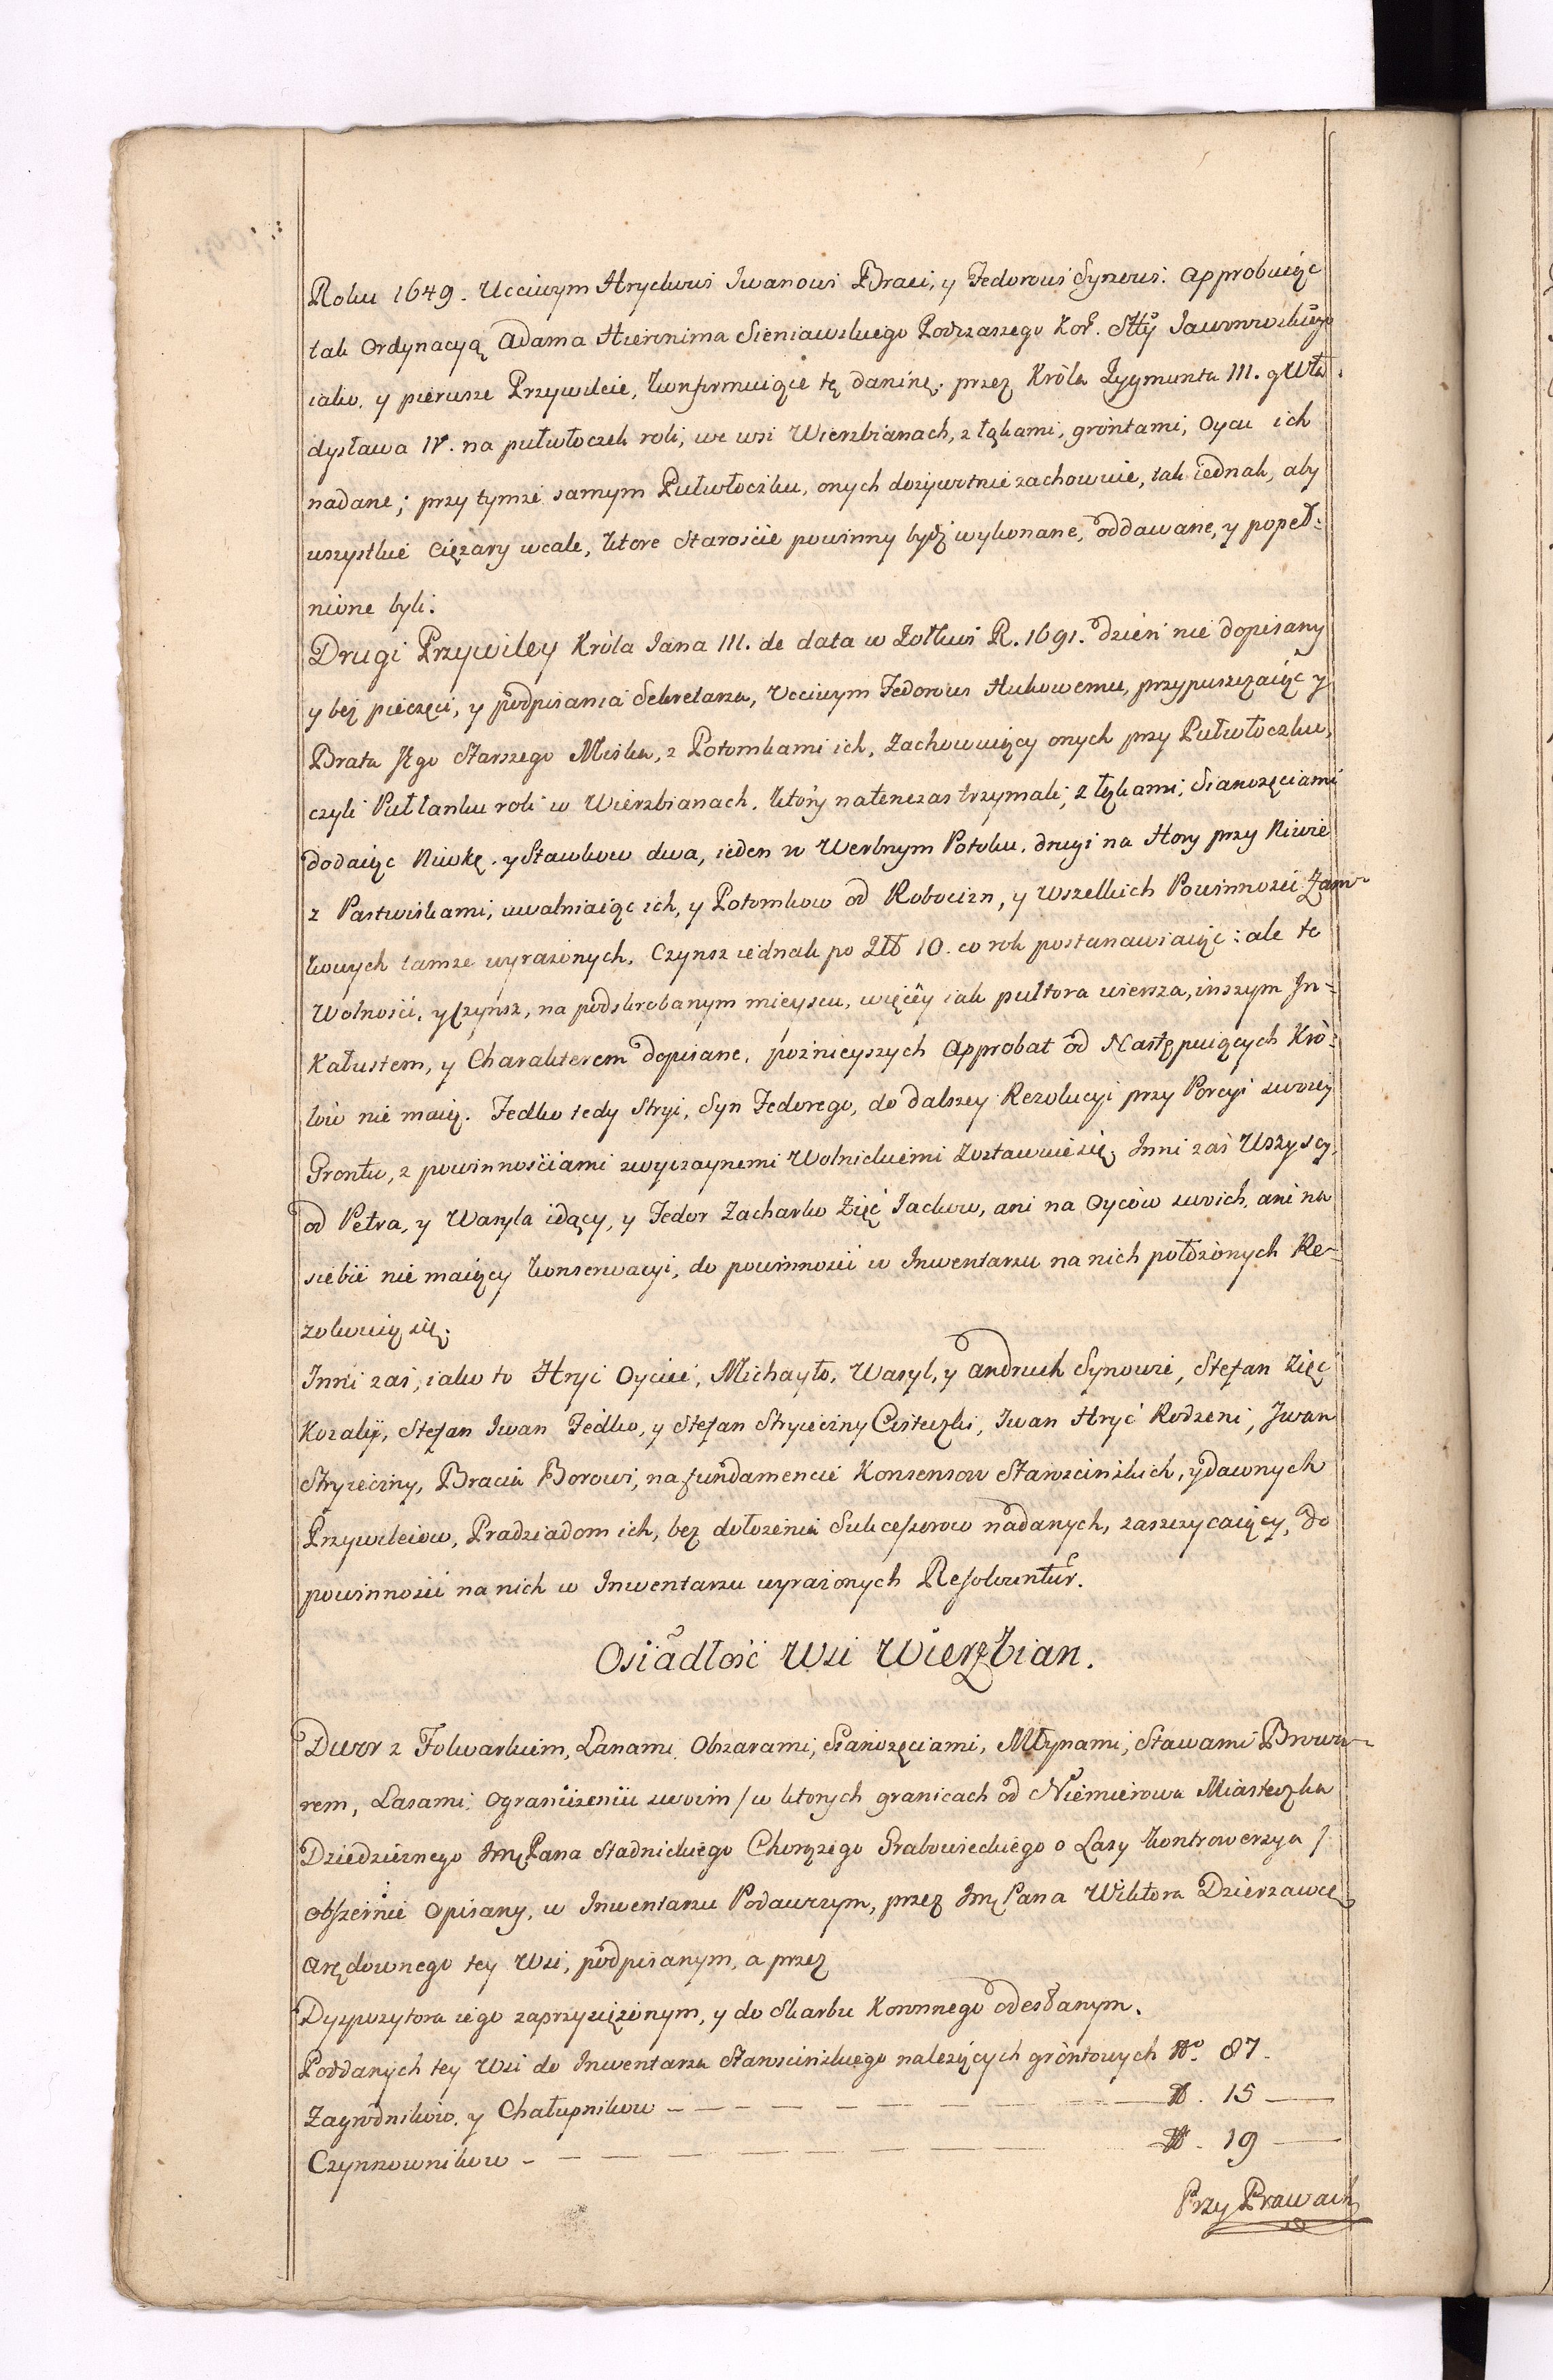 Roku 1649. Ucciwym Hryckowi Iwanowi Braci, y Fedorowi Synowi. Approbuiąc
tak Ordynacyą Adama Hieronima Sieniawskiego Podczaszego Kor. Stty Jaworowskiego
iako, y pierwsze Przywileie, konfirmuiące tę daninę. przez Króla Zygmunta III. y Wła-
dysława IV. na pułwłoczek roli, we wsi Wierzbianach, z łąkami, gróntami, Oycu ich
nadane; przy tymże samym Pułwłoczku, onych dożywotnie zachowuie, tak iednak, aby
wszystkie ciężary wcale, ktore Staroście powinny bydź wykonane, oddawane, y popeł-
nione byli.
Drugi Przywiley Króla Jana III. de data w Zołkwi R. 1691. dzień nie dopisany
y bez pieczęci, y podpisania Sekretarza, Ucciwym Fedorowi Hukowemu, przypuszczaiąc y
Brata Jego Starszego Miśka, z Potomkami ich, Zachowuiący onych przy Pułwłoczku,
czyli Pułłanku roli w Wierzbianach, który natenczas trzymali, z łąkami, Sianożęciami
dodaiąc Niwkę, y Stawkow dwa, ieden w Werbnym Potoku, drugi na Hory przy Niwie
z Pastwiskami, uwalniaiąc ich, y Potomkow od Robocizn, y wszelkich Powinności Zam-
kowych tamże wyrażonych, Czynsz iednak po Złł 10. co rok postanawiaiąc: ale te
Wolności, y Czynsz, na podskrobanym mieyscu, więcey iak pultora wiersza, inszym In-
kaustem, y Charakterem dopisane, poznieyszych Approbat od Następuiących Kró-
low nie maią. Fedko tedy Stryi, Syn Fedorego, do dalszey Rezolucyi przy Porcyi swoiey
Grontu, z powinnościami zwyczaynemi Wolnickiemi Zostawuie się, Inni zaś Wszyscy,
od Petra, y Wasyla idący, y Fedor Zacharko Zięć Jackow, ani na Oyców swoich, ani na
siebie nie maiący konserwacyi, do powinności w Inwentarzu na nich położonych Re-
zolwuią się.
Inni zaś, iako to Hryc Oyciec, Michayło, Wasyl, y Andruch Synowie, Stefan Zięć
Kozaly, Stefan Iwan Fedko, y Stefan Stryieczny Cisteczki, Iwan Hryć Rodzeni, Iwan
Stryieczny, Bracia Borowi, na fundamencie Konsensow Starościńskich, y dawnych
Przywileiow, Pradziadom ich, bez dołożenia Sukcessorow nadanych, zaszczycaiący, do
powinności na nich w Inwentarzu wyrażonych Resolwuntur.
Osiadłość Wsi Wierzbian.
Dwor z Folwarkiem, Łanami, Obszarami, Sianożęciami, Młynami, Stawami Browa-
rem, Lasami, Ograniczeniu swoim / w ktorych granicach od Niemierowa Miasteczka
Dziedzicznego Jmć Pana Stadnickiego Chorążego Grabowieckiego o Lasy kontrowersya /
obszernie Opisany, w Inwentarzu Podawczym, przez Jmć Pana Wiktora Dzierzawcę
Arędownego tey Wsi, podpisanym, a przez
Dyspozytora iego zaprzysiężonym, y do Skarbu Koronnego odesłanym.
Poddanych tey Wsi do Inwentarza Starościńskiego należących gróntowych No. 87.
Zagrodnikow, y Chałupnikow - - - - - - - - - N. 15 —
Czynszownikow - - - - - - - - - N. 19 —
Przy Prawach